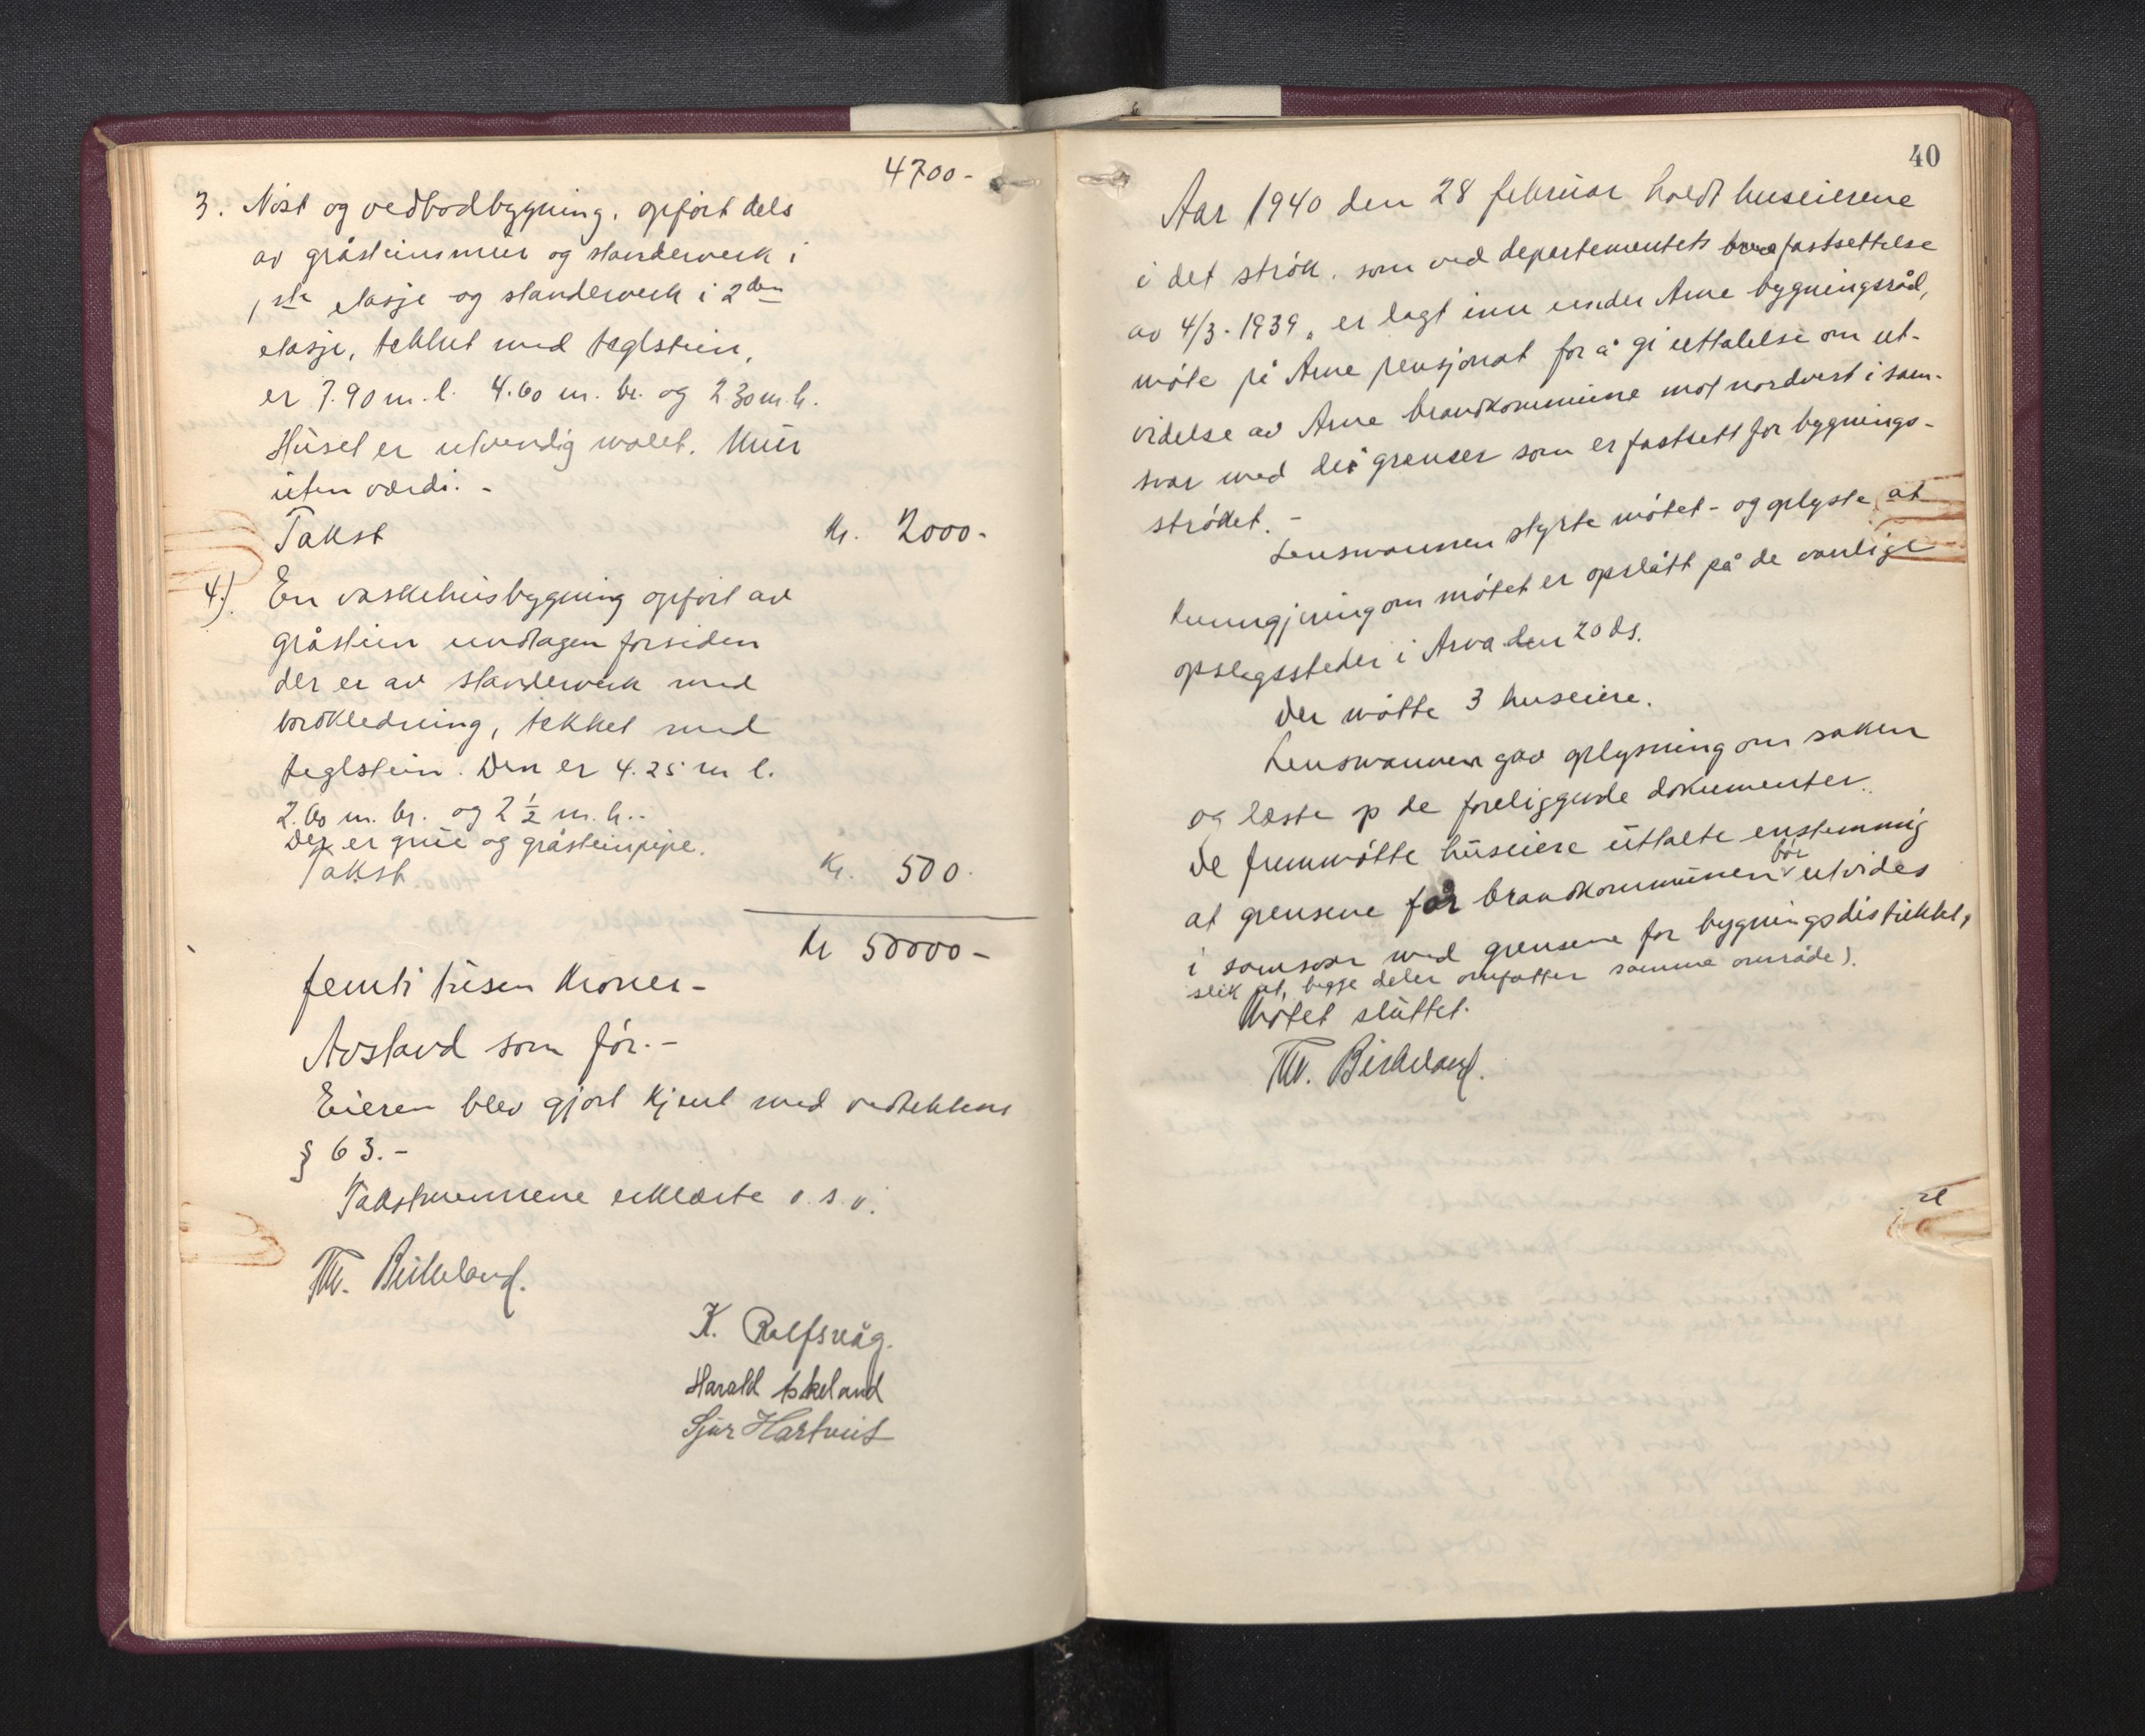 4700-
3. Nøst og vedbodbygning, opført dels
av gråsteinsmur og standerverk i
1ste etasje og standerverk i 2den
etasje, tekket med teglstein,
er 7.90 m. l. 4.60 m. br. og 2.30 m. h.
Huset er utvendig malet. Mur
uten værdi. -
Takst Kr. 2000-
4.) En vaskehusbygning opført av
gråstein undtagen forsiden
der er av standerverk med
bordkledning, tekket med
teglstein. Den er 4.25 m l.
2.60 m. br. og 2 ½ m. h..
Der er grue og gråsteinpipe.
Takst Kr. 500.
Kr 50000-
femti tusen Kroner-
Avstand som før.-
Eieren blev gjort kjent med vedtektens
§ 63.-
Takstmennene erklærte o. s. v.
Th. Birkeland.
K. Rolfsvåg.
Harald Askeland
Sjur Hartveit
40
Aar 1940 den 28 februar holdt huseierene
i det strøk, som ved departementets fastsettelse
av 4/3-1939, er lagt inn under Arne bygningsråd,
møte på Arne pensjonat for å gi uttalelse om ut-
videlse av Arne brandkommune mot nordvest i sam-
svar med de grenser som er fastsett for bygnings-
strøket. -
Lensmannen styrte møtet - og oplyste at
kunngjøring om møtet er opslått på de vanlige
opslagssteder i Arna den 20 ds.
Der møtte 3 huseiere.
Lensmannen gav oplysning om saken
og læste op de foreliggende dokumenter.
De fremmøtte huseiere uttalte enstemmig
at grensene for brandkommunen bør utvides
i samsvar med grensene for bygningsdistriktet,
slik at, begge deler omfatter samme område).
Møtet sluttet.
Th. Birkeland.